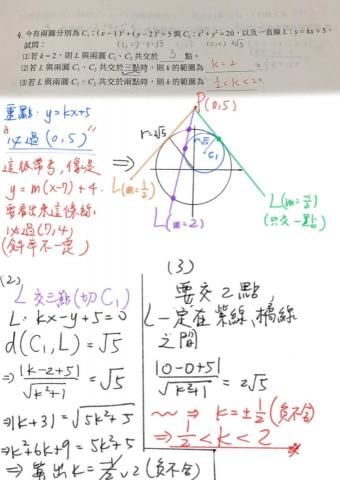 4. 今有兩圓分別為 C₁：(x－1)²＋(y－2)²＝5 與 C₂：x²＋y²＝20，以及一直線 L：y＝kx＋5，
試問：
(1,2) √5 (0,0) 2√5
(1)若 k＝2，則 L 與兩圓 C₁、C₂ 共交於 3 點；
(2)若 L 與兩圓 C₁、C₂ 共交於三點時，則 k 的範圍為 k=2
(3)若 L 與兩圓 C₁、C₂ 共交於兩點時，則 k 的範圍為 1/2<k<2。
重點: y=kx+5
"必過(0,5)"
y=m(x-7)+4.
要看出來這條線
必過(7,4)
(斜率不一定)
⇒
P(0,5)
r=2√5
r=√5
C₁
L(m=1/2)
L(m=2)
L(m=-1/2)
(只交一點)
(2)
L 交三點(切C₁)
L: kx-y+5=0
d(C₁,L)=√5
⇒|k-2+5|/√k²+1=√5
⇒|k+3|=√5k²+5
⇒k²+6k+9=5k²+5
⇒算出k=-1/2 ∨ 2(負不合)
(3)
要交2點,
L一定在紫線、橘線
之間
|0-0+5|/√k²+1=2√5
⇒ k=±1/2(負不合)
⇒1/2<k<2